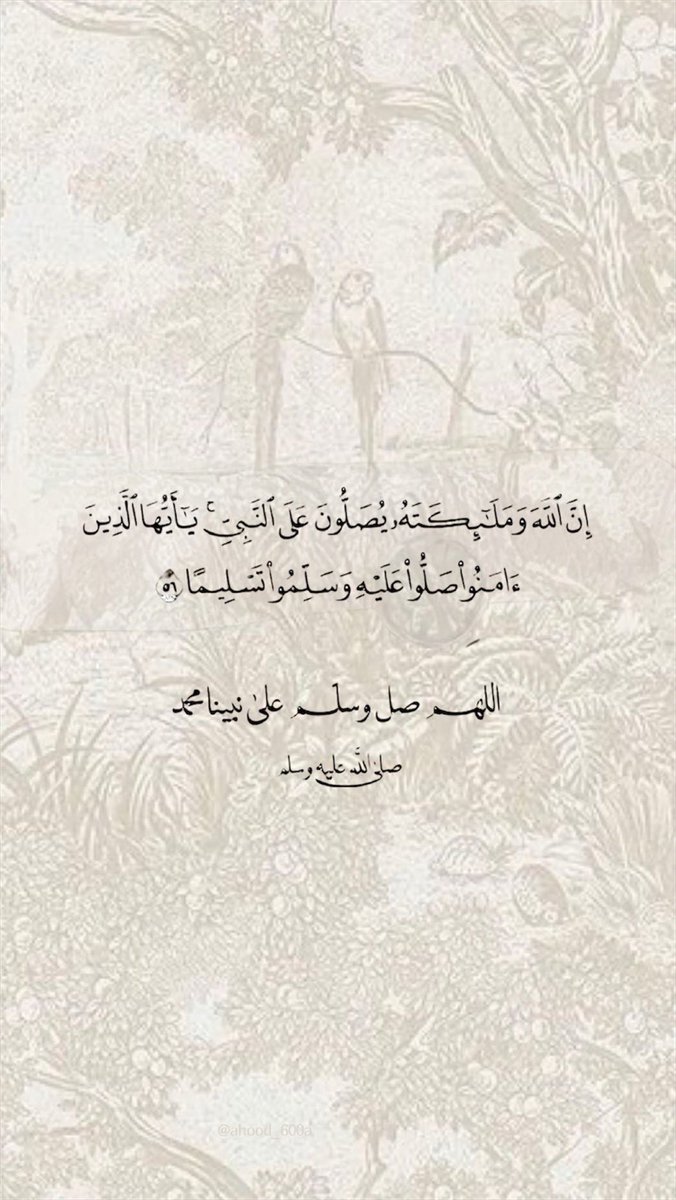 إِنَّ ٱللَّهَ وَمَلَـٰٓئِكَتَهُۥ يُصَلُّونَ عَلَى ٱلنَّبِىِّ ۚ يَـٰٓأَيُّهَا ٱلَّذِينَ
ءَامَنُوا۟ صَلُّوا۟ عَلَيْهِ وَسَلِّمُوا۟ تَسْلِيمًا ٥٦
اللهم صل وسلم على نبينا محمد
صلى الله عليه وسلم
@ahood_600a